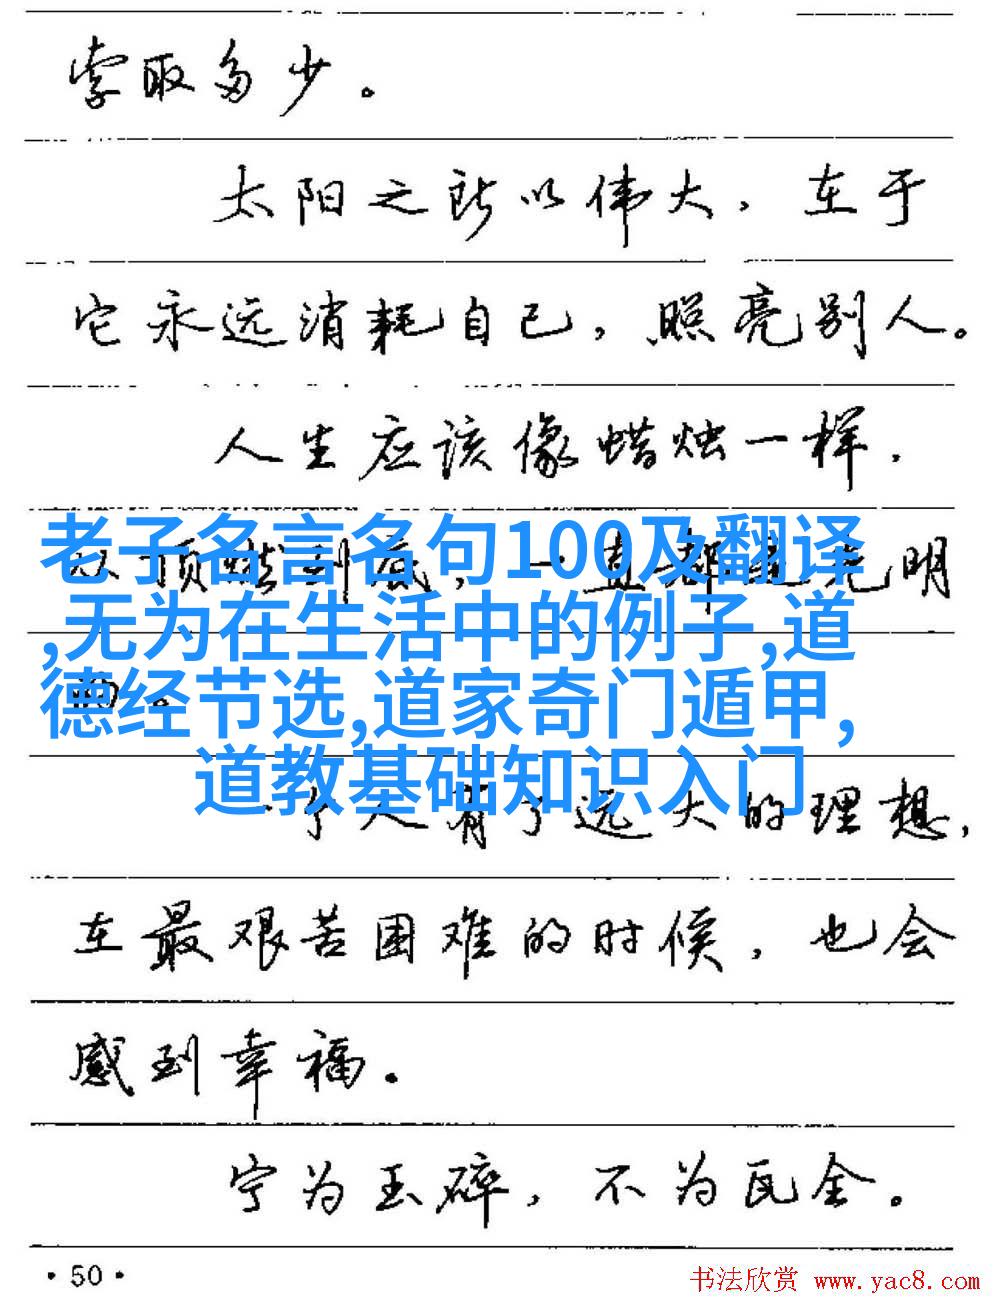 索取多少。
太阳之所以伟大，在于
它永远消耗自己，照亮别人。
人生应该像蜡烛一样，
从顶燃到底，一直都是光明
老子名言名句100及翻译
,无为在生活中的例子,道
的。
德经节选,道家奇门遁甲,
道教基础知识入门
一个人有了远大的理想，
在最艰苦困难的时候，也会
感到幸福。
宁为玉碎，不为瓦全。
·50·
书法欣赏 www.yac8.com